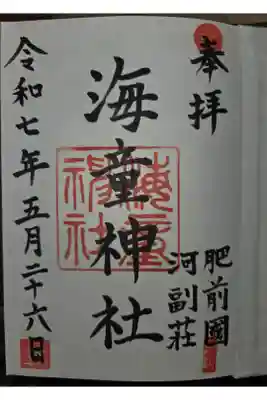 奉拝
肥前國
河副荘
海童神社
海童
神社
令和七年五月二十六